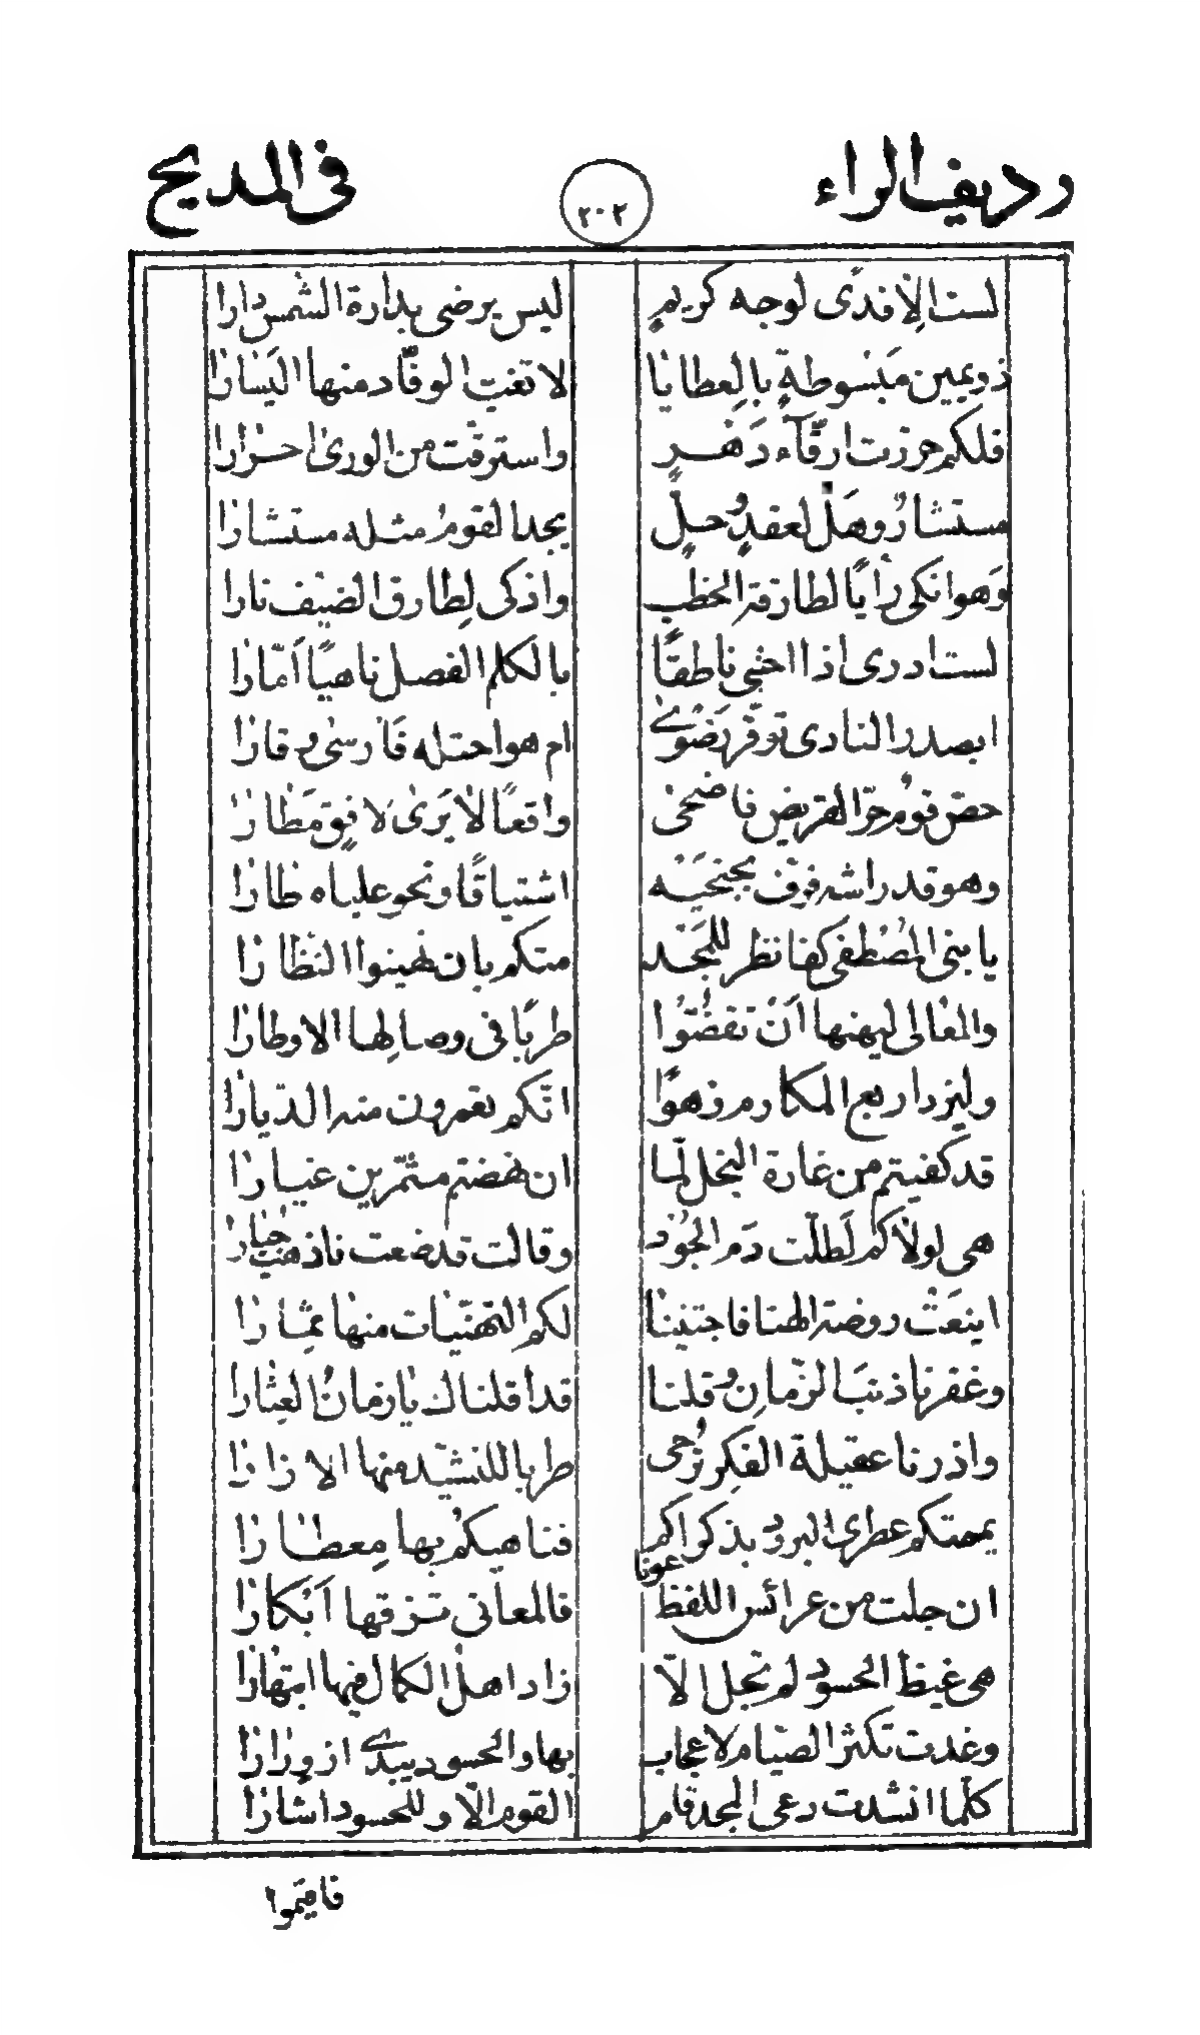 رديف الراء ٢٠٢ في المديح
لست الا فدى لوجه كريم ليس يرضى بدارة الشمس دارا
ذو يمين مبسوطة بالعطايا لا تفت الوفّاد منها اليسارا
فلكم حرزت ارقّاء دهر واسترقت من الورى احرارا
مستشار وهل لعقد وحل يجد القوم مثله مستشارا
وهو انكى رأيًا لطارقة الخطب واذكى لطارق الضيف نارا
لست ادرى اذا احتبى ناطقًا بالكلم الفصل ناهيًا امّارا
ابصدر النادى توقّر رضوى ام هو احتله فارسى وقارا
حضّ قوم حرّ القريض فاضحى واقعًا لا يرى لافق مطارا
وهو قد راشه فرفّ بجنحيه اشتياقًا ونحو علياه طارا
يا بنى المصطفى كفا نظر للمجد منكم بان تهينوا النظارا
والمعالى ليهنها ان تقضّوا طربًا فى وصالها الاوطارا
وليزد اربع المكارم زهوًا انّكم تعمرون منه الديارا
قد كفيتم من غارة البخل لما ان نهضتم مشمّرين غيارا
هى لولاكم لطلّت دم الجود وقالت قد ضعت فاذهب جبارا
اينعت روضة الهنا فاجتنينا لكم التهنيات منها ثمارا
وغفرنا ذنب الزمان وقلنا قد اقلناك يا زمان العثارا
واذرنا عقيلة الفكر تزجى طربا للنشيد منها الازارا
يممتكم عطرى البرود بذكراكم فناهيكم بها معطارا
ان جلت من عرائس اللفظ عونا فالمعانى تزفها ابكارا
هى غيظ الحسود لم تجل الاّ زاد اهل الكمال فيها ابتهارا
وغدت تكثر الصيام لاعجاب بها والحسود يبدى ازورارا
كلّما انشدت دعى المجد قام القوم الاّ وللحسود اشارا
فاقيموا